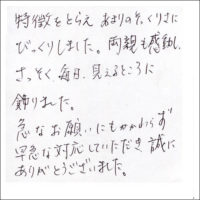 特徴をとらえ あまりのそっくりさに
びっくりしました。両親も感動し、
さっそく、毎日、見えるところに
飾りました。
急なお願いにもかかわらず
早急な対応していただき 誠に
ありがとうございました。